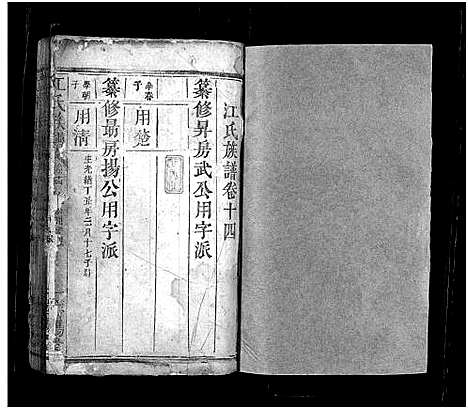 江氏族譜卷十四
纂修昇房武公用字派
辛春子
用楚
纂修勗房揚公用字派
學朝子
用清
生光緒丁丑年三月十七子時
江氏族譜